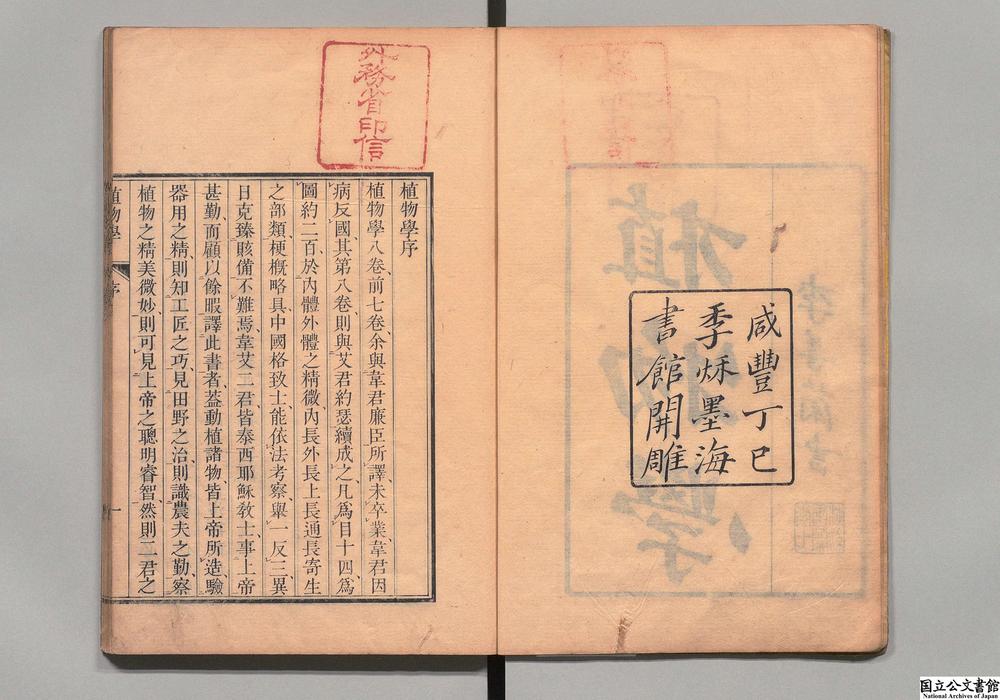 咸豐丁巳
季秌墨海
書館開雕
外務省印信
植物學序
植物學八卷前七卷余與韋君廉臣所譯未卒業韋君因
病反國其第八卷則與艾君約瑟續成之凡爲目十四爲
圖約二百於內體外體之精微內長外長上長通長寄生
之部類梗概略具中國格致士能依法考察舉一反三異
日克臻賅備不難焉韋艾二君皆泰西耶穌教士事上帝
甚勤而顧以餘暇譯此書者葢動植諸物皆上帝所造驗
器用之精則知工匠之巧見田野之治則識農夫之勤察
植物之精美微妙則可見上帝之聰明睿智然則二君之
植物學
序
一
国立公文書館
National Archives of Japan